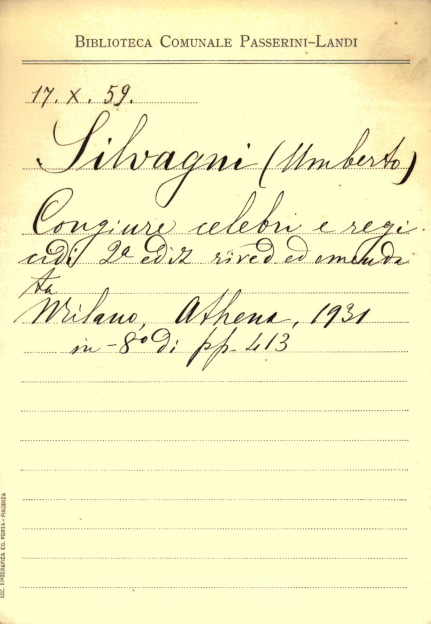 BIBLIOTECA COMUNALE PASSERINI-LANDI
17. X. 59.
Silvagni (Umberto)
Congiure celebri e regi
cidi 2ª ediz rived ed emenda
ta
Milano, Athena, 1931
in-8° di pp. 413
SOC. TIPOGRAFICA ED. PORTA - PIACENZA